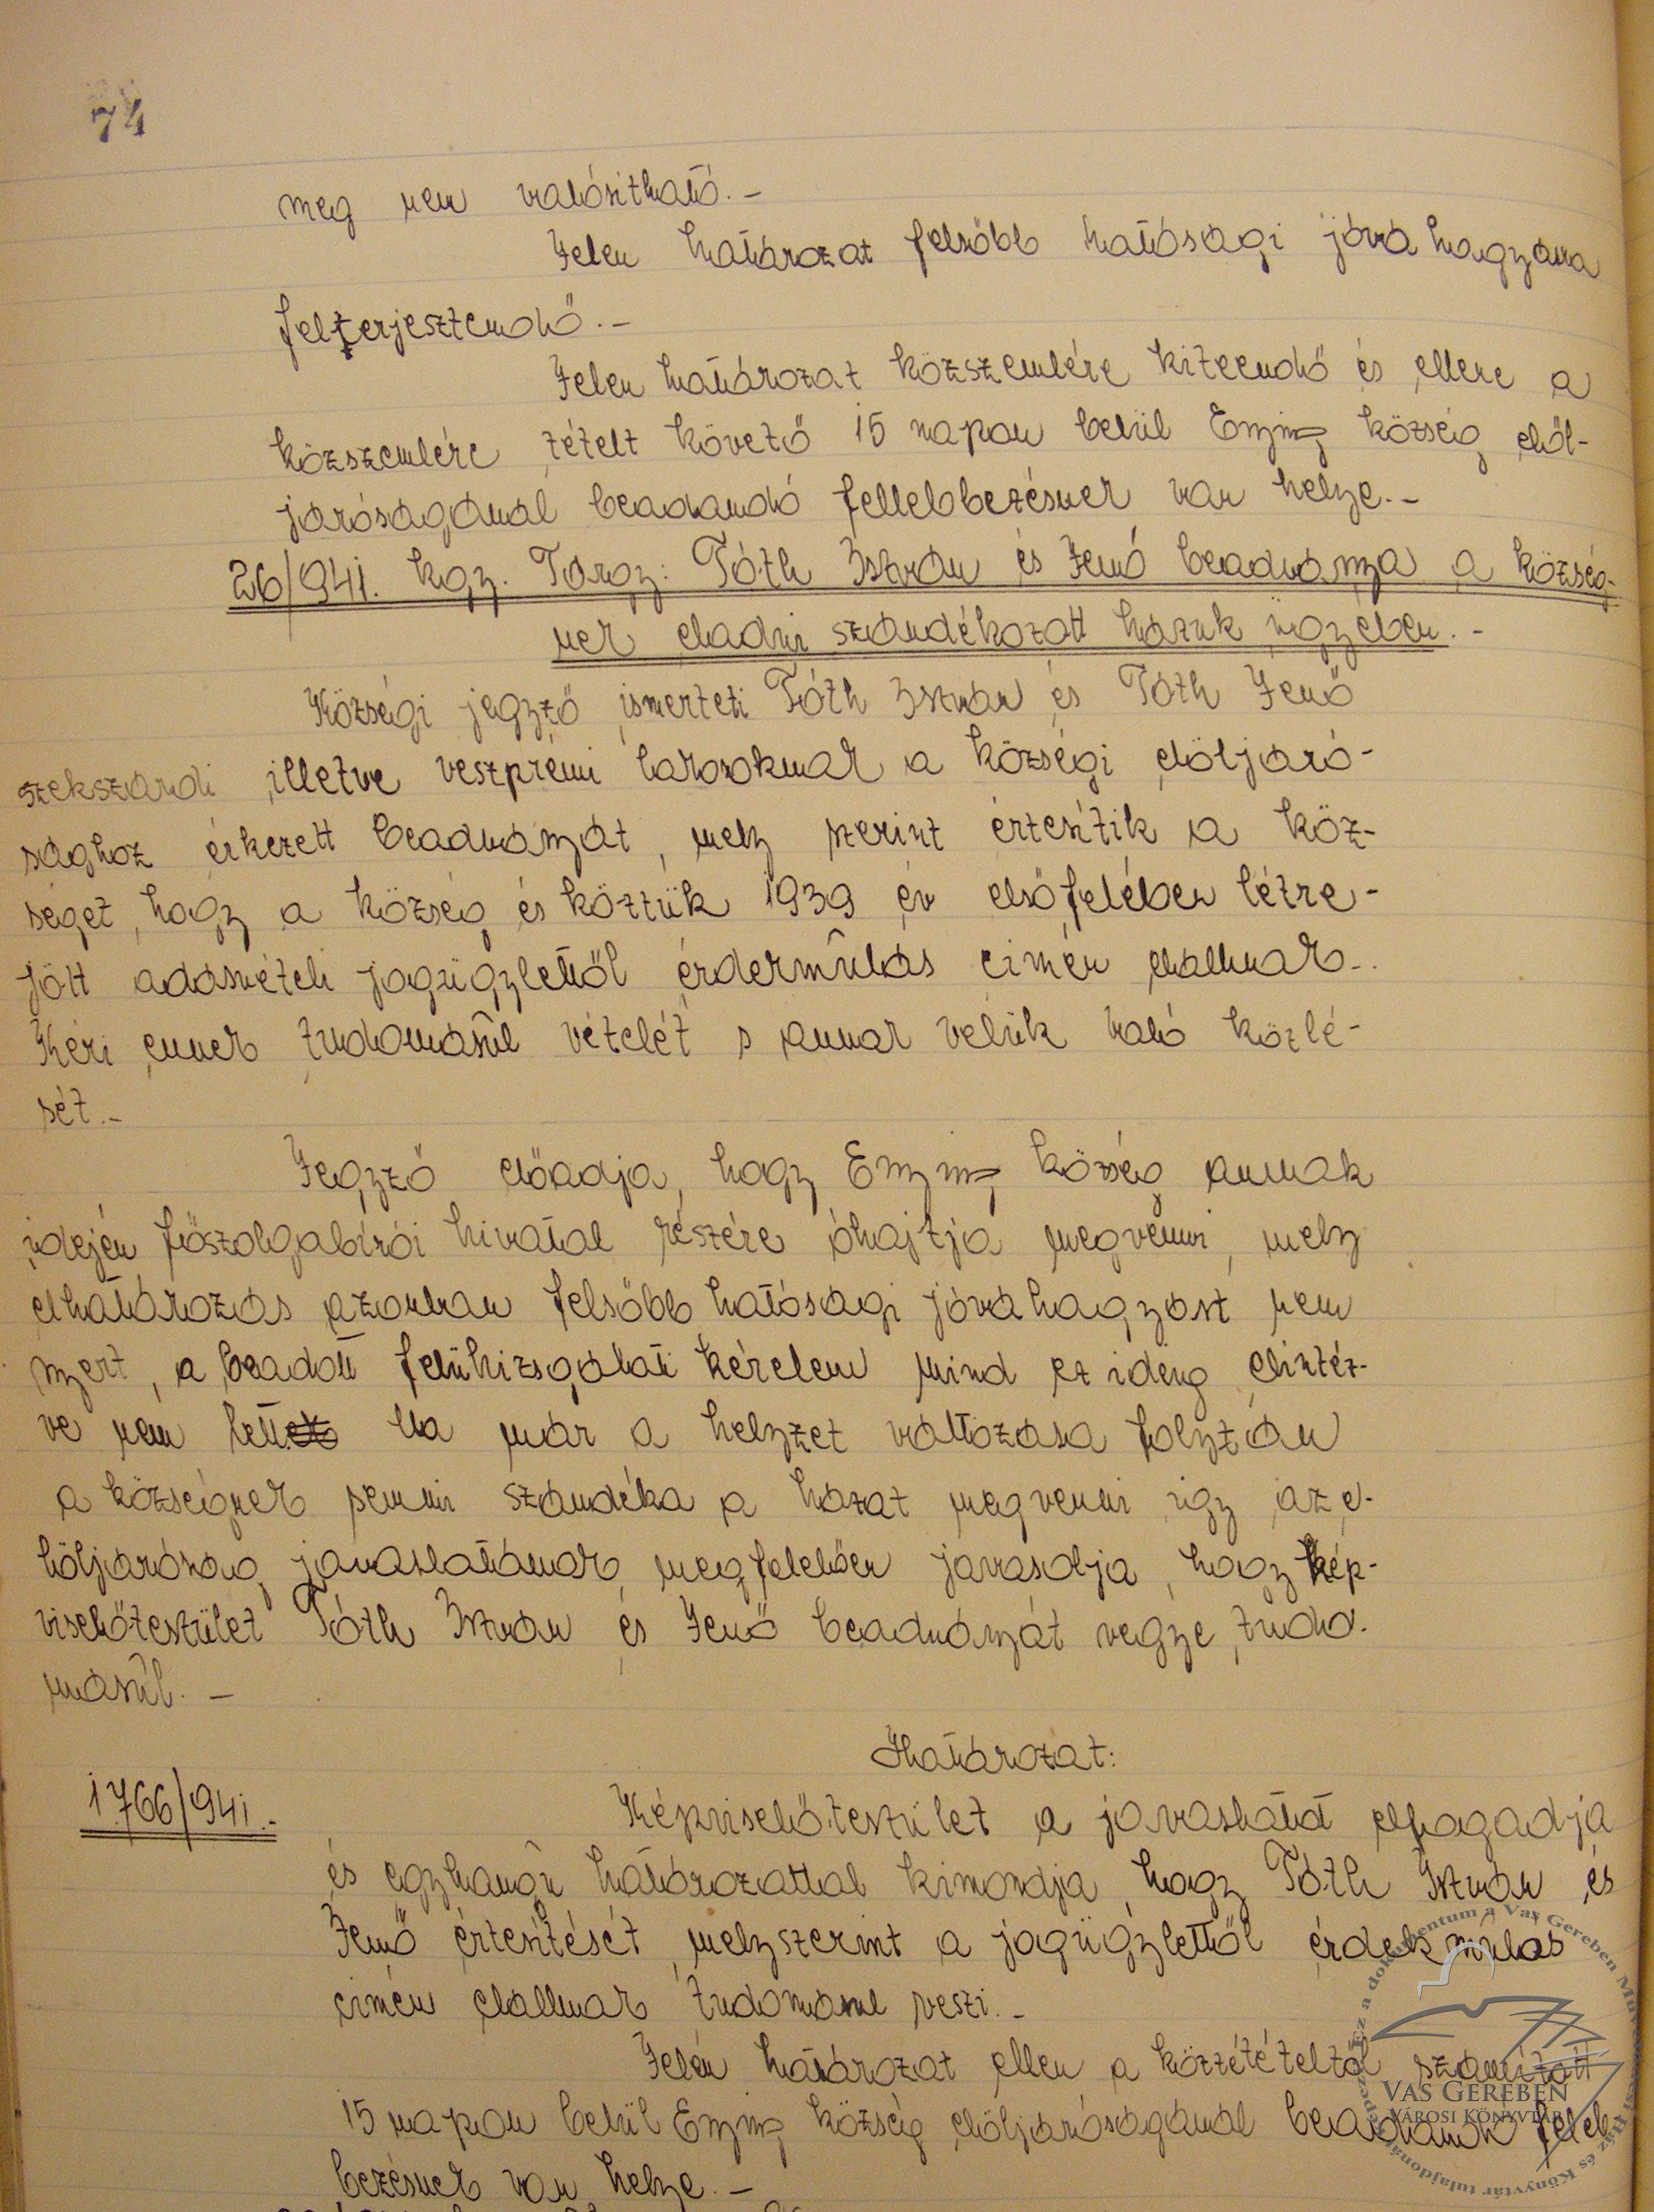 74
meg nem valósitható.-
Jelen határozat felsőbb hatósági jóváhagyásra
felterjesztendő.-
Jelen határozat közszemlére kiteendő és ellene a
közszemlére tételt követő 15 napon belül Enying község elöl-
járóságánál beadandó fellebbezésnek van helye.-
26/941. kgy. Tárgy: Tóth István és Jenő beadványa a község-
nek eladni szándékozott házuk ügyében.-
Községi jegyző ismerteti Tóth István és Tóth Jenő
szekszárdi illetve veszprémi lakosoknak a községi elöljáró-
sághoz érkezett beadványát, mely szerint értesítik a köz-
séget, hogy a község és köztük 1939 év elsőfelében létre-
jött adásvételi jogügylettől érdekmúlás címén elállnak.-
Kéri ennek tudomásúl vételét s annak velük való közlé-
sét.-
Jegyző előadja, hogy Enying község annak
idején főszolgabírói hivatal részére óhajtja megvenni, mely
elhatározás azonban felsőbb hatósági jóváhagyást nem
nyert, a beadott felülvizsgálati kérelem mind ez ideig elintéz-
ve nem lett. Ma már a helyzet változása folytán
a községnek semmi szándéka a házat megvenni így az e-
löljáróság javaslatának megfelelően javasolja, hogy kép-
viselőtestület Tóth István és Jenő beadványát vegye tudo-
másúl.-
Határozat:
1766/941.-
Képviselőtestület a javaslatot elfogadja
és egyhangú határozattal kimondja, hogy Tóth István és
Jenő értesítését, melyszerint a jogügylettől érdekmulás
címén elállnak tudomásul veszi.-
Jelen határozat ellen a közzétételtől számított
15 napon belül Enying község elöljáróságánál beadandó felleb-
bezésnek van helye.-
VAS GEREBEN
VÁROSI KÖNYVTÁR